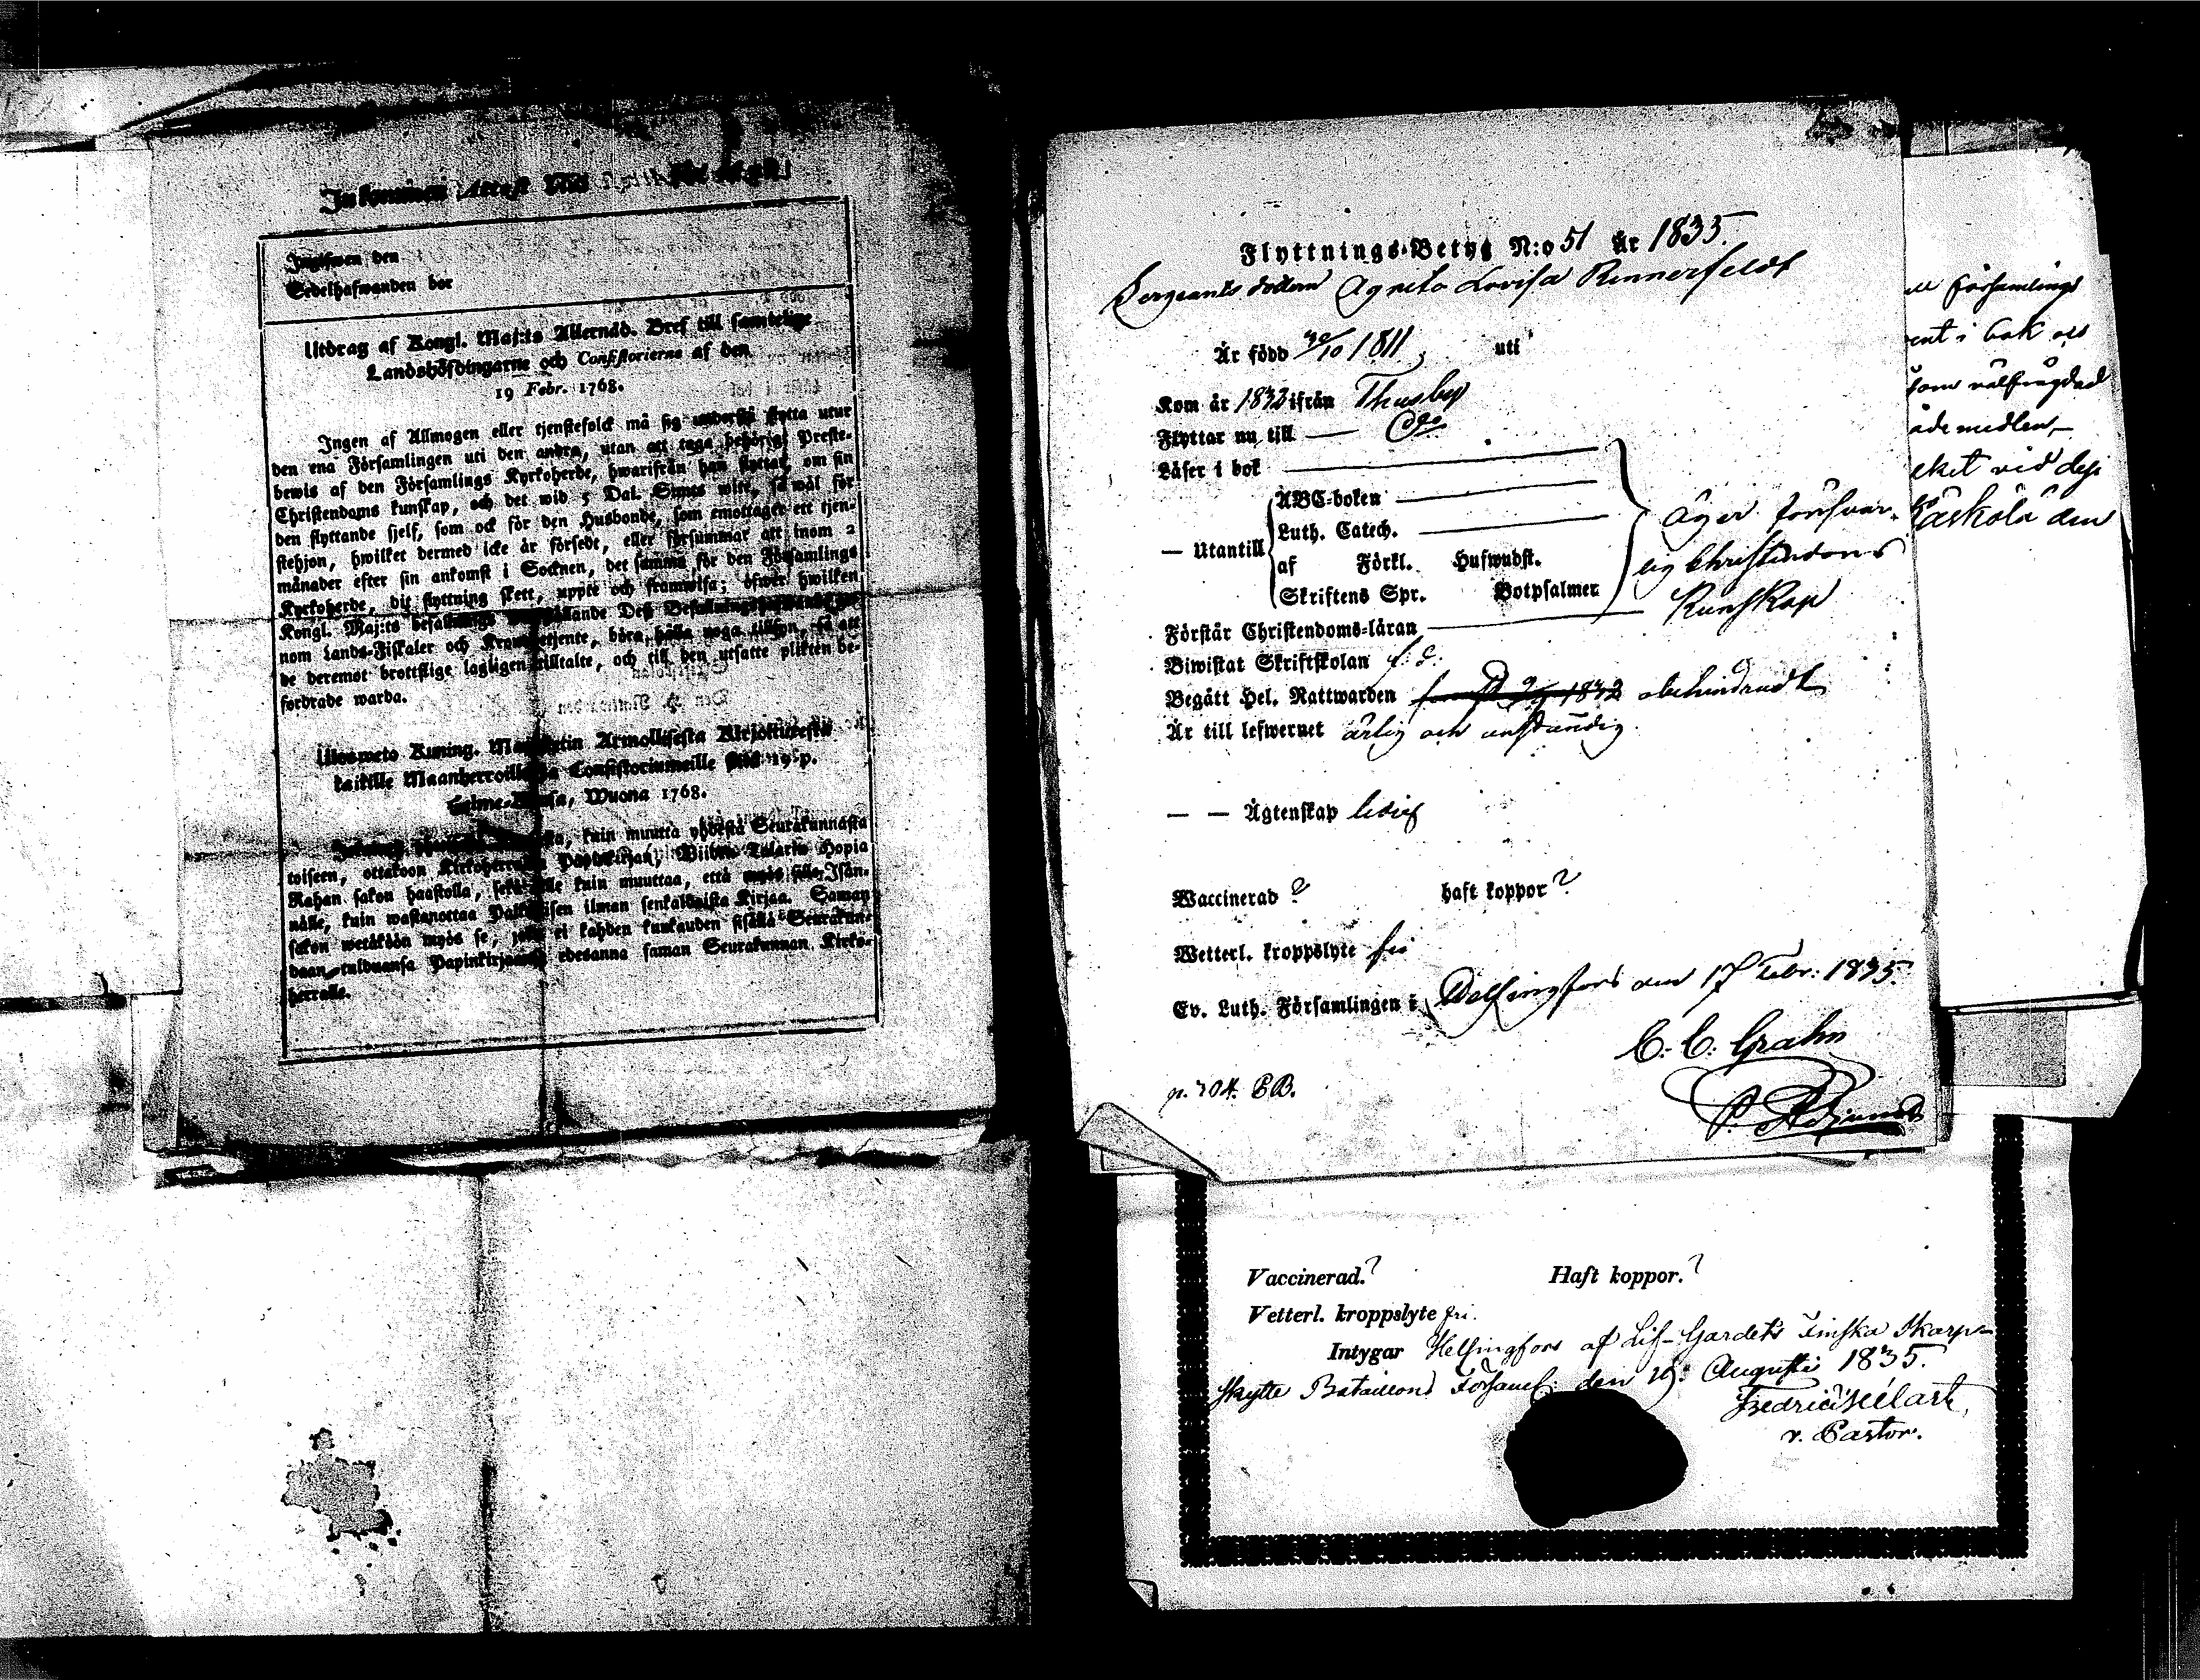 Inkommen Attest
Ingifwen den
Sedelhafwanden bor
Utdrag af Kongl. Maj:ts Allernåd. Bref till samtelige
Landshöfdingarne och Consistorierne af den
19 Febr. 1768.
Ingen af Allmogen eller tjenstefolck må sig understå flytta utur
den ena Församlingen uti den andra, utan att taga behörigt Preste-
bewis af den Församlings Kyrkoherde, hwarifrån han flyttat, om sin
Christendoms kunskap, och det wid 5 Dal. Smts wite, så wäl för
den flyttande sjelf, som ock för den Husbonde, som emottager ett tjen-
stehjon, hwilket dermed icke är försedt, eller försummar att inom 2
månader efter sin ankomst i Socknen, det samma för den Församlings
Kyrkoherde, dit flyttning skett, uppte och framwisa; öfwer hwilken
Kongl. Maj:ts befallnings
nom Lands-Fiskaler och Kronobetjente, böra hålla noga tillsyn, så att
de deremot brottslige lagligen tilltalte, och till den utsatte plikten be-
fordrade warda.
Ulosweto Kuning. Majestetin Armollisesta Kirjoituxesta
kaikille Maanherroille ja Consistoriumeille sinä 19 p.
Helme-Kuusa, Wuona 1768.
kuin muutta yhdestä Seurakunnasta
toiseen, ottakoon Kirkoherralta Papinkirjan, Wiiden Talarin Hopia
Rahan sakon haastolla, sekä sille kuin muuttaa, että myös sille Isän-
nälle, kuin wastanottaa Palkollisen ilman senkaldaista Kirjaa. Saman
sakon wetäköön myös se, joka ei kahden kuukauden sisällä Seurakun-
daan tulduansa Papinkirjaansa edesanna saman Seurakunnan Kirko-
herralle.
Flyttnings-Betyg N:o 51 År 1835.
Sergeants dottern Agneta Lovisa Rennerfeldt
Är född 30/10 1811, uti
Kom år 1832 ifrån Thusby
Flyttar nu till — Do
Läser i bok
ABC-boken
Luth. Catech.
— Utantill af Förkl. Hufwudst.
Skriftens Spr. Botpsalmer
äger försvar-
lig Christendoms
Kunskap
Förstår Christendoms-läran
Biwistat Skriftskolan f. d.
Begått Hel. Nattwarden obehindradt
Är till lefwernet ärlig och anständig.
— — Ägtenskap ledig
Waccinerad ? haft koppor ?
Wetterl. kroppslyte fri
Ev. Luth. Församlingen i Helsingfors den 17 Febr: 1835.
C. C. Grahn
P. Adjunct
p. 704. CB.
församlings
ent i bok och
som välfrägdad
åde medlen,
eket vid dess
Käskölä den
Vaccinerad. ? Haft koppor. ?
Vetterl. kroppslyte fri.
Intygar Helsingfors af Lif-Gardets Finska Skarp-
skytte Bataillons Församl: den 19: Augusti 1835.
Fredric
v. Pastor.